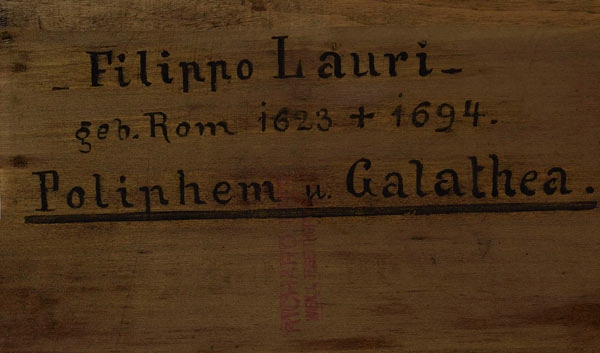 - Filippo Lauri -
geb. Rom 1623 + 1694.
Poliphem u. Galathea.